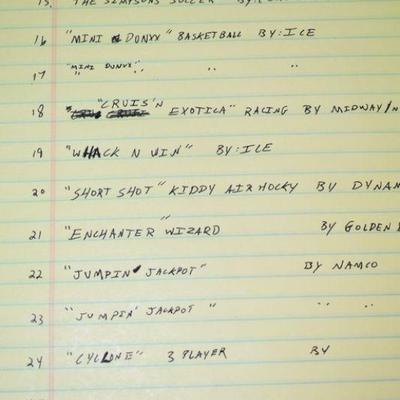 15. THE SIMPSONS SOCCER BY:
16 "MINI DUNXX" BASKETBALL BY:ICE
17 "MINI DUNXX" " "
18 "CRUIS'N EXOTICA" RACING BY MIDWAY/N
19 "WHACK N WIN" BY:ICE
20 "SHORT SHOT" KIDDY AIR HOCKY BY DYNAM
21 "ENCHANTER WIZARD" BY GOLDEN
22 "JUMPIN' JACKPOT" BY NAMCO
23 "JUMPIN' JACKPOT" " "
24 "CYCLONE" 3 PLAYER BY